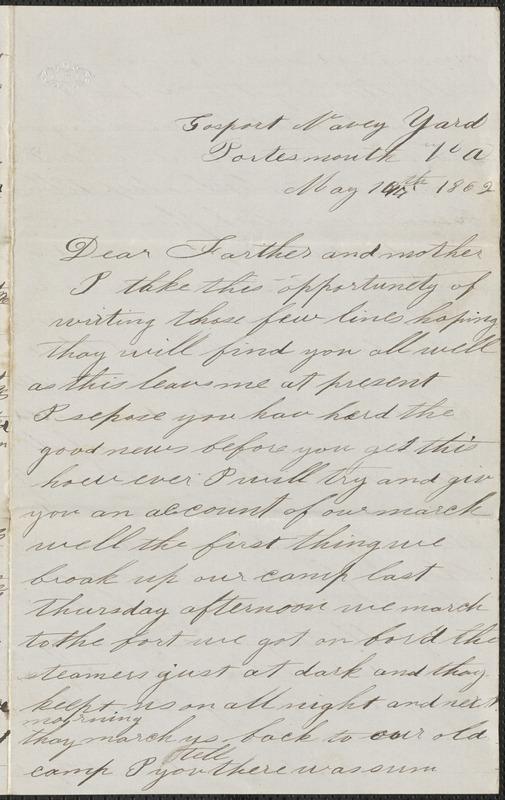 Gosport Navey Yard
Portesmouth Va
May 1862
Dear Farther and mother
I take this opportunety of
writing those few lines hoping
thay will find you all well
as this leavs me at present
I sepose you hav herd the
good news before you get this
howe ever I will try and giv
you an account of our march
well the first thing we
broak up our camp last
thursday afternoon we march
to the fort we got on bord the
steamers just at dark and thay
keept us on all night and next
morning
thay march us back to our old
till
camp I you there was sum